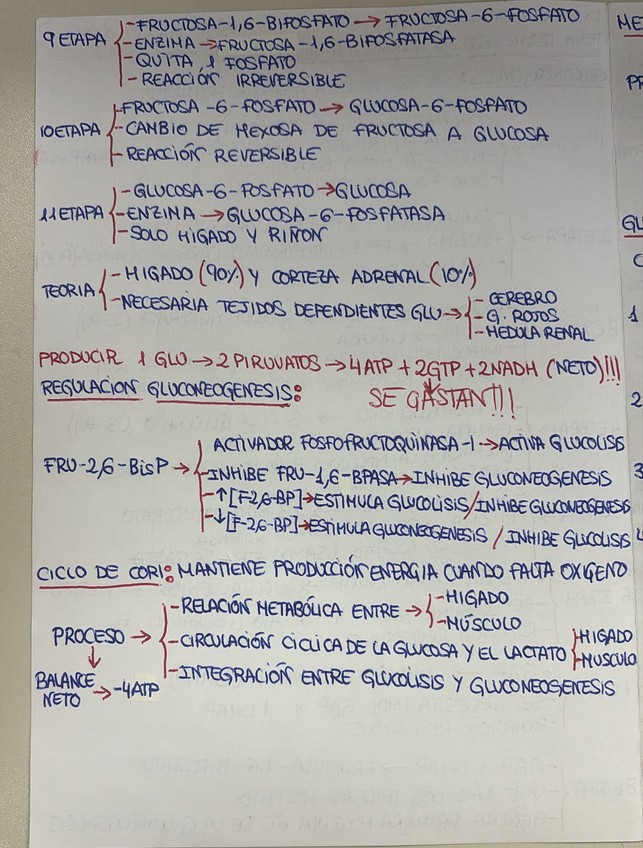 9 ETAPA
-FRUCTOSA-1,6-BIFOSFATO → FRUCTOSA-6-FOSFATO
-ENZIMA → FRUCTOSA-1,6-BIFOSFATASA
-QUITA 1 FOSFATO
-REACCIÓN IRREVERSIBLE
10 ETAPA
-FRUCTOSA-6-FOSFATO → GLUCOSA-6-FOSFATO
-CAMBIO DE HEXOSA DE FRUCTOSA A GLUCOSA
-REACCIÓN REVERSIBLE
11 ETAPA
-GLUCOSA-6-FOSFATO → GLUCOSA
-ENZIMA → GLUCOSA-6-FOSFATASA
-SOLO HÍGADO Y RIÑÓN
TEORIA
-HIGADO (90%) Y CORTEZA ADRENAL (10%)
-NECESARIA TEJIDOS DEPENDIENTES GLU →
-CEREBRO
-G. ROJOS
-MEDULA RENAL
PRODUCIR 1 GLU → 2 PIRUVATOS → 4 ATP + 2GTP + 2NADH (NETO)!!!
SE GASTAN!!!
REGULACION GLUCONEOGENESIS:
FRU-2,6-BisP →
ACTIVADOR FOSFOFRUCTOQUINASA-1 → ACTIVA GLUCOLISIS
-INHIBE FRU-1,6-BPASA → INHIBE GLUCONEOGENESIS
-↑[F-2,6-BP] → ESTIMULA GLUCOLISIS / INHIBE GLUCONEOGENESIS
-↓[F-2,6-BP] → ESTIMULA GLUCONEOGENESIS / INHIBE GLUCOLISIS
CICLO DE CORI: MANTIENE PRODUCCIÓN ENERGIA CUANDO FALTA OXIGENO
PROCESO →
-RELACIÓN METABÓLICA ENTRE →
-HIGADO
-MÚSCULO
-CIRCULACIÓN CICLICA DE LA GLUCOSA Y EL LACTATO
HIGADO
MUSCULO
-INTEGRACIÓN ENTRE GLUCOLISIS Y GLUCONEOGENESIS
BALANCE NETO → -4ATP
ME
PR
GL
C
1
2
3